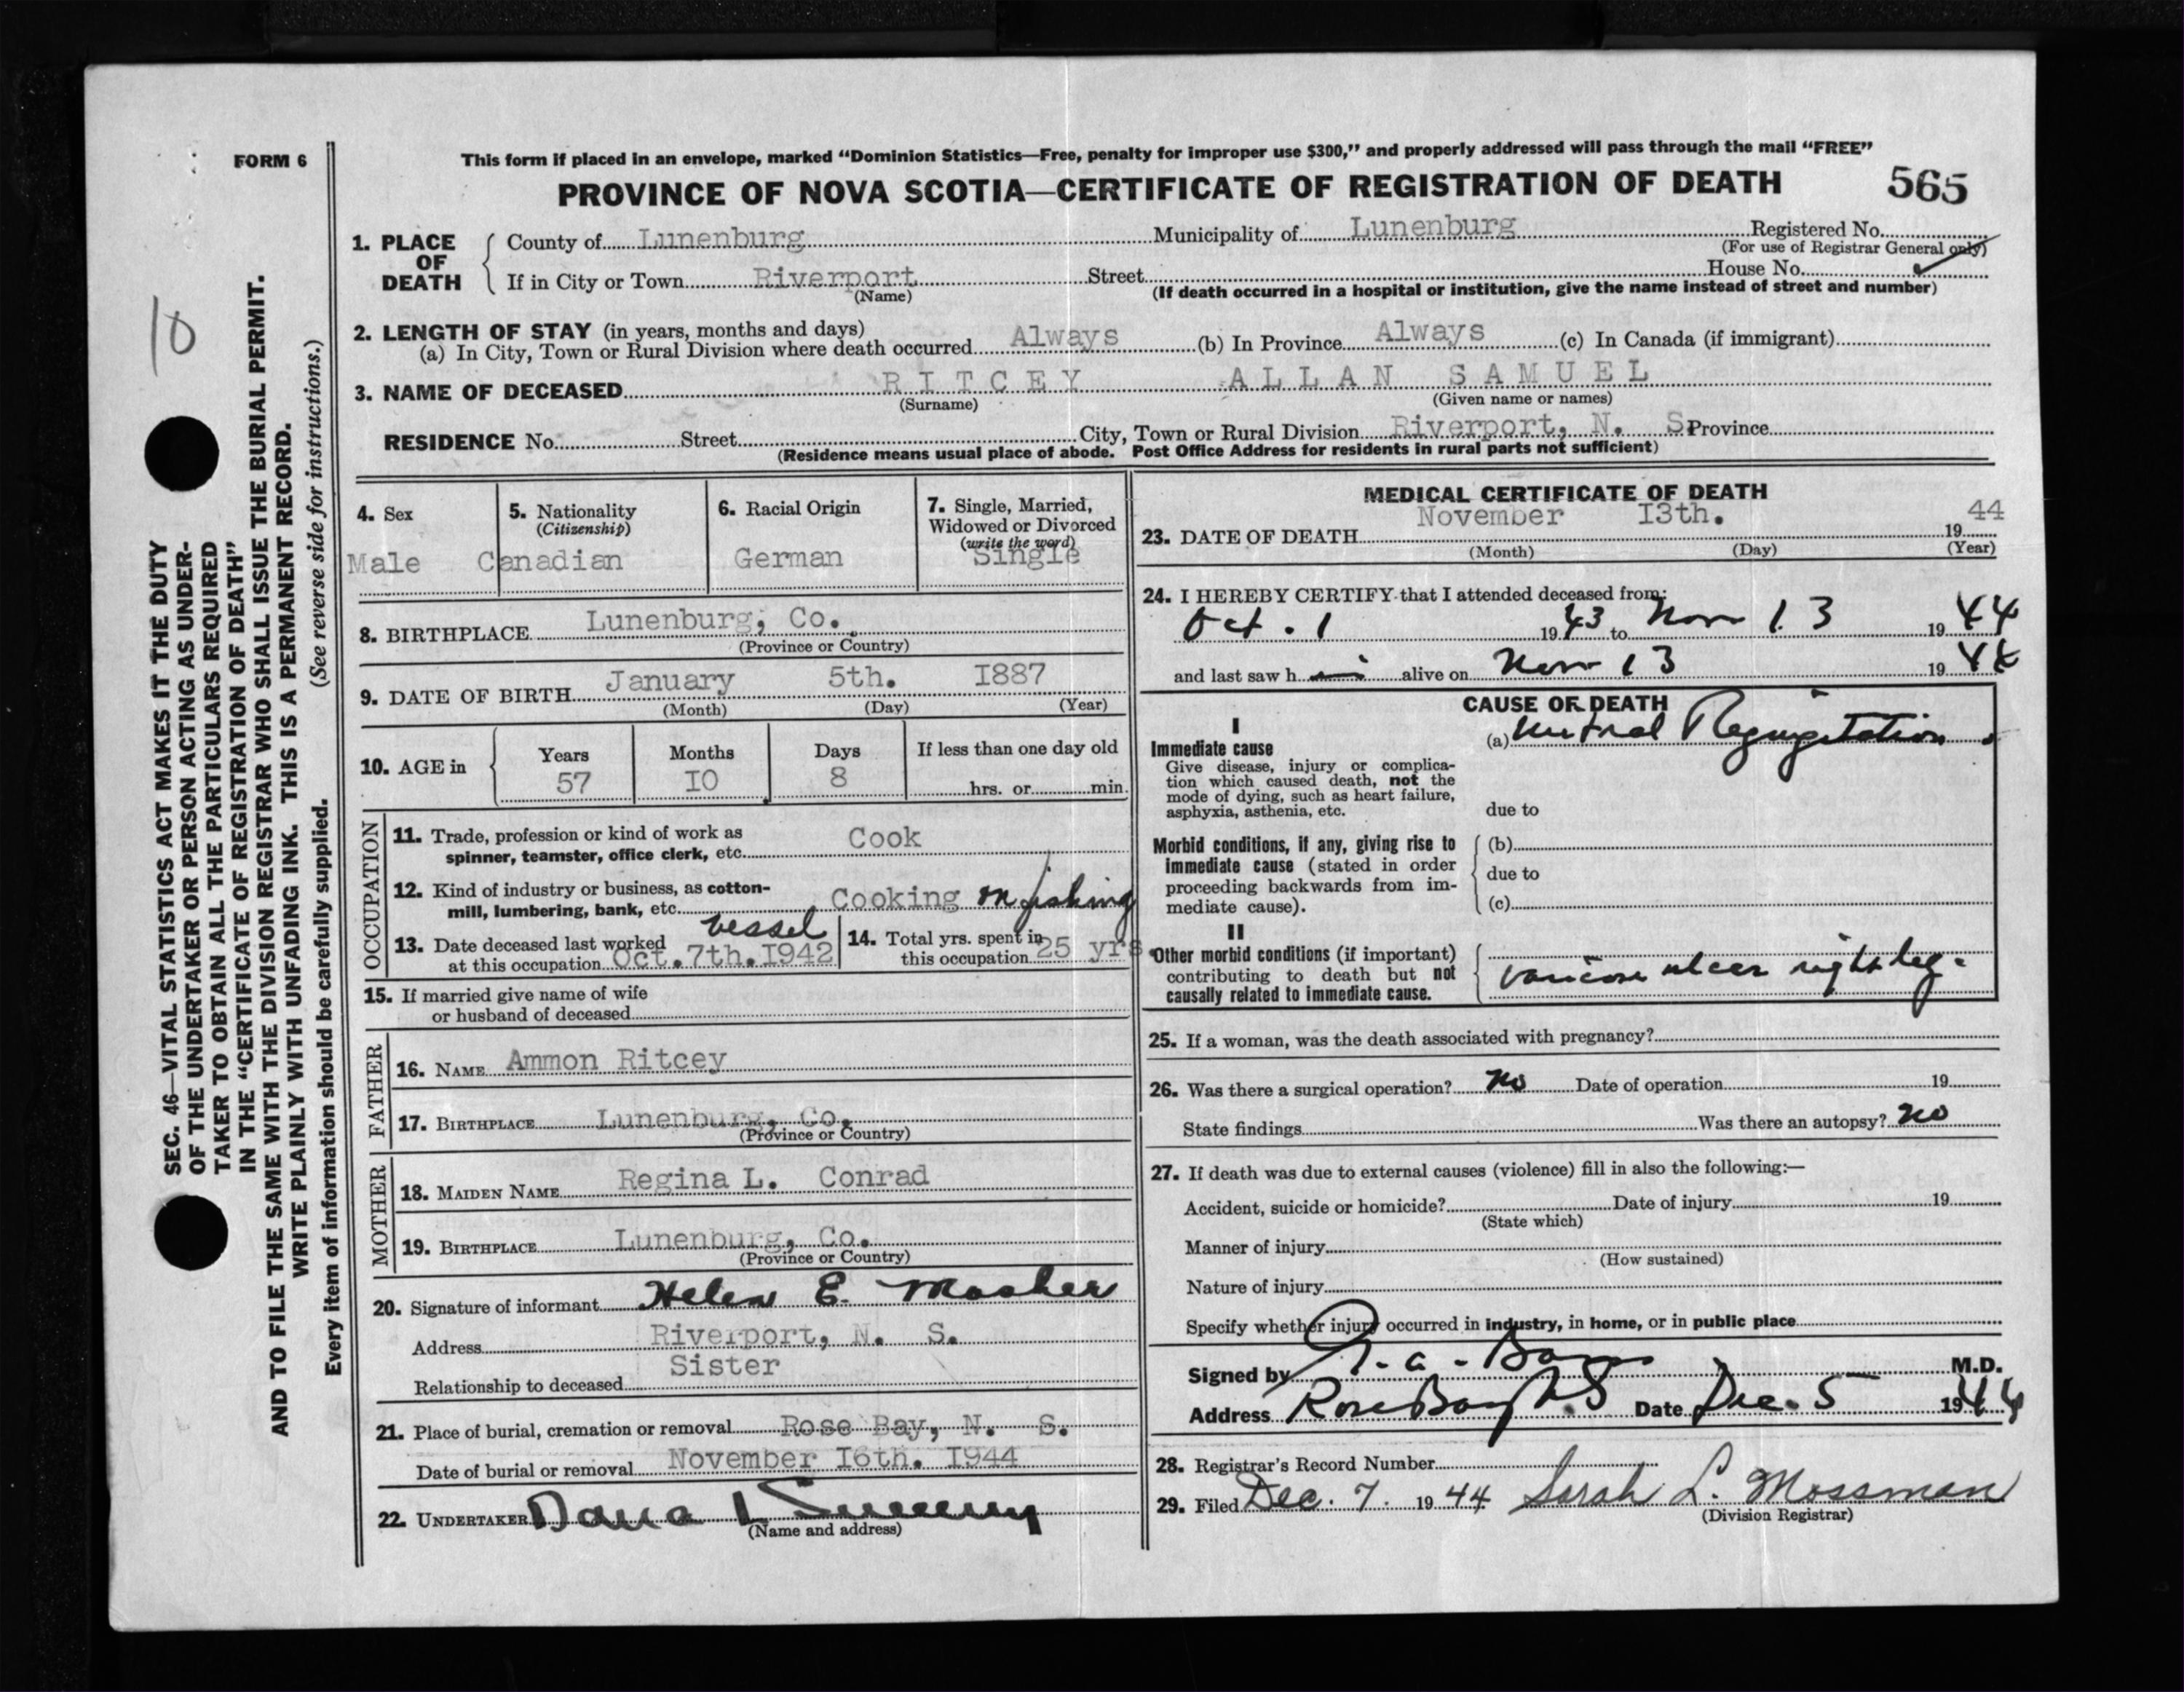 FORM 6
This form if placed in an envelope, marked “Dominion Statistics—Free, penalty for improper use $300,” and properly addressed will pass through the mail “FREE”
PROVINCE OF NOVA SCOTIA—CERTIFICATE OF REGISTRATION OF DEATH 565
10
SEC. 46—VITAL STATISTICS ACT MAKES IT THE DUTY
OF THE UNDERTAKER OR PERSON ACTING AS UNDER-
TAKER TO OBTAIN ALL THE PARTICULARS REQUIRED
IN THE “CERTIFICATE OF REGISTRATION OF DEATH”
AND TO FILE THE SAME WITH THE DIVISION REGISTRAR WHO SHALL ISSUE THE BURIAL PERMIT.
WRITE PLAINLY WITH UNFADING INK. THIS IS A PERMANENT RECORD.
Every item of information should be carefully supplied. (See reverse side for instructions.)
1. PLACE OF DEATH
County of Lunenburg Municipality of Lunenburg Registered No.
(For use of Registrar General only)
If in City or Town Riverport Street House No.
(Name) (If death occurred in a hospital or institution, give the name instead of street and number)
2. LENGTH OF STAY (in years, months and days)
(a) In City, Town or Rural Division where death occurred Always (b) In Province Always (c) In Canada (if immigrant)
3. NAME OF DECEASED RITCEY ALLAN SAMUEL
(Surname) (Given name or names)
RESIDENCE No. Street City, Town or Rural Division Riverport, N. S. Province
(Residence means usual place of abode. Post Office Address for residents in rural parts not sufficient)
4. Sex
Male
5. Nationality
(Citizenship)
Canadian
6. Racial Origin
German
7. Single, Married,
Widowed or Divorced
(write the word)
Single
8. BIRTHPLACE Lunenburg, Co.
(Province or Country)
9. DATE OF BIRTH January 5th. I887
(Month) (Day) (Year)
10. AGE in
Years Months Days If less than one day old
57 IO 8 hrs. or min.
OCCUPATION
11. Trade, profession or kind of work as
spinner, teamster, office clerk, etc. Cook
12. Kind of industry or business, as cotton-
mill, lumbering, bank, etc. Cooking on fishing
vessel
13. Date deceased last worked
at this occupation Oct. 7th. I942
14. Total yrs. spent in
this occupation 25 yrs
15. If married give name of wife
or husband of deceased
FATHER
16. NAME Ammon Ritcey
17. BIRTHPLACE Lunenburg, Co.
(Province or Country)
MOTHER
18. MAIDEN NAME Regina L. Conrad
19. BIRTHPLACE Lunenburg, Co.
(Province or Country)
20. Signature of informant Helen E. Mosher
Address Riverport, N. S.
Relationship to deceased Sister
21. Place of burial, cremation or removal Rose Bay, N. S.
Date of burial or removal November I6th. I944
22. UNDERTAKER Dana L Sweeny
(Name and address)
MEDICAL CERTIFICATE OF DEATH
23. DATE OF DEATH November I3th. 19 44
(Month) (Day) (Year)
24. I HEREBY CERTIFY that I attended deceased from:
Oct. 1 19 43 to Nov 13 19 44
and last saw h im alive on Nov 13 19 44
CAUSE OF DEATH
I
Immediate cause
Give disease, injury or complica-
tion which caused death, not the
mode of dying, such as heart failure,
asphyxia, asthenia, etc.
(a) Mitral Regurgitation.
due to
Morbid conditions, if any, giving rise to
immediate cause (stated in order
proceeding backwards from im-
mediate cause).
(b)
due to
(c)
II
Other morbid conditions (if important)
contributing to death but not
causally related to immediate cause.
varicose ulcer right leg.
25. If a woman, was the death associated with pregnancy?
26. Was there a surgical operation? No Date of operation 19
State findings Was there an autopsy? No
27. If death was due to external causes (violence) fill in also the following:—
Accident, suicide or homicide? Date of injury 19
(State which)
Manner of injury
(How sustained)
Nature of injury
Specify whether injury occurred in industry, in home, or in public place
Signed by M.D.
Address Rose Bay N.S Date Dec. 5 19 44
28. Registrar's Record Number
29. Filed Dec. 7. 19 44 Sarah L. Mossman
(Division Registrar)